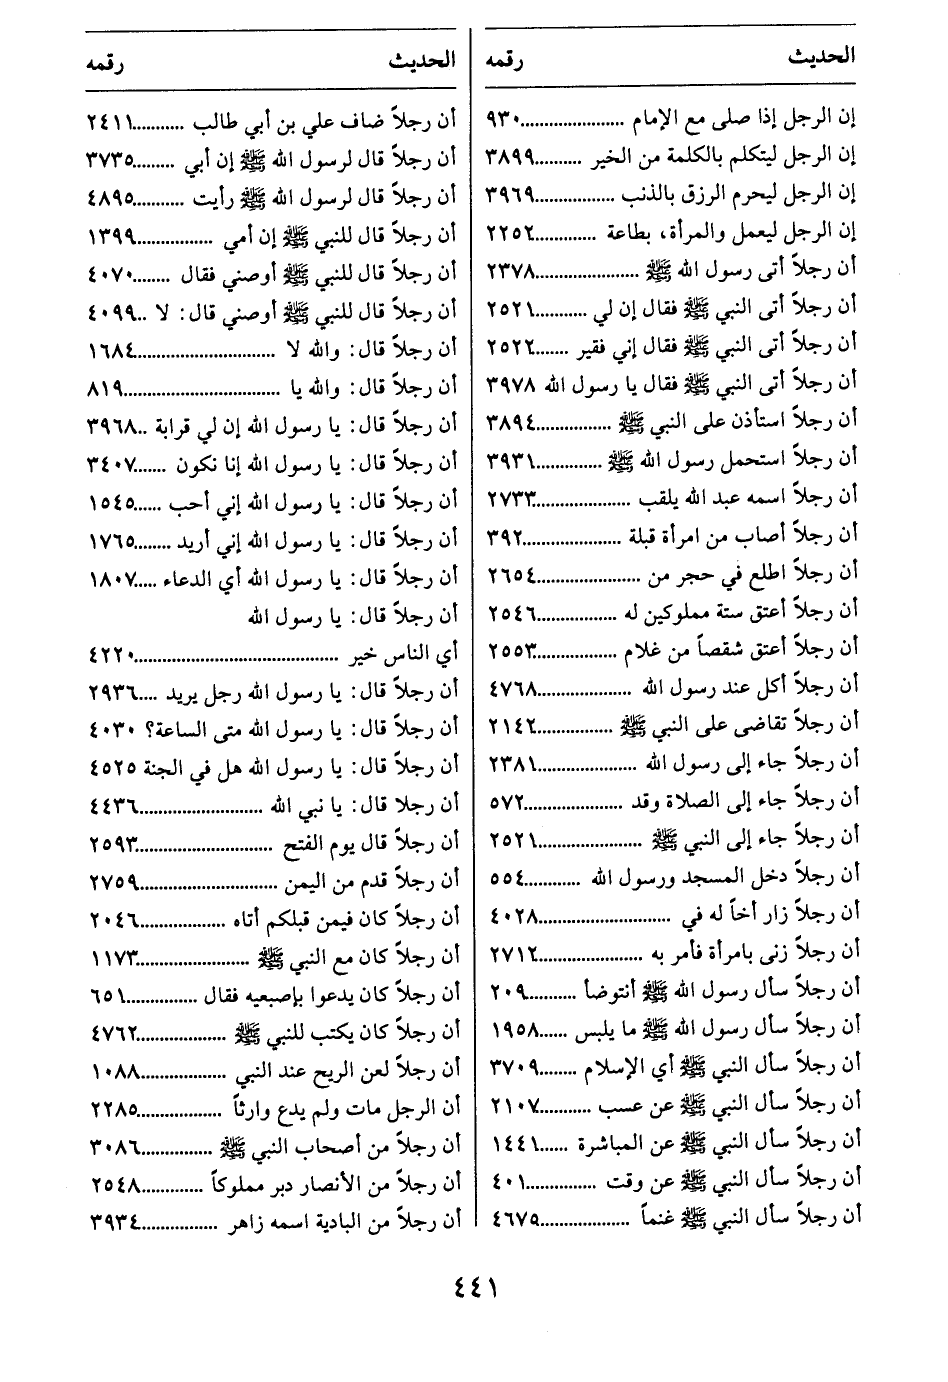 الحديث رقمه
إن الرجل إذا صلى مع الإمام ......................٩٣٠
إن الرجل ليتكلم بالكلمة من الخير ..........٣٨٩٩
إن الرجل ليحرم الرزق بالذنب .................٣٩٦٩
إن الرجل ليعمل والمرأة، بطاعة .............٢٢٥٢
أن رجلاً أتى رسول الله ﷺ ......................٢٣٧٨
أن رجلاً أتى النبي ﷺ فقال إن لي ...........٢٥٢١
أن رجلاً أتى النبي ﷺ فقال إني فقير .......٢٥٢٢
أن رجلاً أتى النبي ﷺ فقال يا رسول الله ٣٩٧٨
أن رجلاً استأذن على النبي ﷺ ................٣٨٩٤
أن رجلاً استحمل رسول الله ﷺ .............٣٩٣١
أن رجلاً اسمه عبد الله يلقب ....................٢٧٣٣
أن رجلاً أصاب من امرأة قبلة .....................٣٩٢
أن رجلاً اطلع في حجر من ......................٢٦٥٤
أن رجلاً أعتق ستة مملوكين له .................٢٥٤٦
أن رجلاً أعتق شقصاً من غلام .................٢٥٥٣
أن رجلاً أكل عند رسول الله ....................٤٧٦٨
أن رجلاً تقاضى على النبي ﷺ ................٢١٤٢
أن رجلاً جاء إلى رسول الله .....................٢٣٨١
أن رجلاً جاء إلى الصلاة وقد .....................٥٧٢
أن رجلاً جاء إلى النبي ﷺ ......................٢٥٢١
أن رجلاً دخل المسجد ورسول الله ............٥٥٤
أن رجلاً زار أخاً له في ............................٤٠٢٨
أن رجلاً زنى بامرأة فأمر به ......................٢٧١٢
أن رجلاً سأل رسول الله ﷺ أنتوضأ ...........٢٠٩
أن رجلاً سأل رسول الله ﷺ ما يلبس ......١٩٥٨
أن رجلاً سأل النبي ﷺ أي الإسلام ........٣٧٠٩
أن رجلاً سأل النبي ﷺ عن عسب ...........٢١٠٧
أن رجلاً سأل النبي ﷺ عن المباشرة ......١٤٤١
أن رجلاً سأل النبي ﷺ عن وقت ...............٤٠١
أن رجلاً سأل النبي ﷺ غنماً ...................٤٦٧٥
الحديث رقمه
أن رجلاً ضاف علي بن أبي طالب ...........٢٤١١
أن رجلاً قال لرسول الله ﷺ إن أبي .........٣٧٣٥
أن رجلاً قال لرسول الله ﷺ رأيت ...........٤٨٩٥
أن رجلاً قال للنبي ﷺ إن أمي ................١٣٩٩
أن رجلاً قال للنبي ﷺ أوصني فقال ........٤٠٧٠
أن رجلاً قال للنبي ﷺ أوصني قال: لا ..٤٠٩٩
أن رجلاً قال: والله لا ..............................١٦٨٤
أن رجلاً قال: والله يا .................................٨١٩
أن رجلاً قال: يا رسول الله إن لي قرابة ..٣٩٦٨
أن رجلاً قال: يا رسول الله إنا نكون .......٣٤٠٧
أن رجلاً قال: يا رسول الله إني أحب ......١٥٤٥
أن رجلاً قال: يا رسول الله إني أريد ........١٧٦٥
أن رجلاً قال: يا رسول الله أي الدعاء .....١٨٠٧
أن رجلاً قال: يا رسول الله
أي الناس خير ...........................................٤٢٢٠
أن رجلاً قال: يا رسول الله رجل يريد ....٢٩٣٦
أن رجلاً قال: يا رسول الله متى الساعة؟ ٤٠٣٠
أن رجلاً قال: يا رسول الله هل في الجنة ٤٥٢٥
أن رجلا قال: يا نبي الله ..........................٤٤٣٦
أن رجلاً قال يوم الفتح .............................٢٥٩٣
أن رجلاً قدم من اليمن .............................٢٧٥٩
أن رجلاً كان فيمن قبلكم أتاه ..................٢٠٤٦
أن رجلاً كان مع النبي ﷺ ........................١١٧٣
أن رجلاً كان يدعوا بإصبعيه فقال ...............٦٥١
أن رجلاً كان يكتب للنبي ﷺ ...................٤٧٦٢
أن رجلاً لعن الريح عند النبي ..................١٠٨٨
أن الرجل مات ولم يدع وارثاً ..................٢٢٨٥
أن رجلاً من أصحاب النبي ﷺ ...............٣٠٨٦
أن رجلاً من الأنصار دبر مملوكاً .............٢٥٤٨
أن رجلاً من البادية اسمه زاهر ................٣٩٣٤
٤٤١